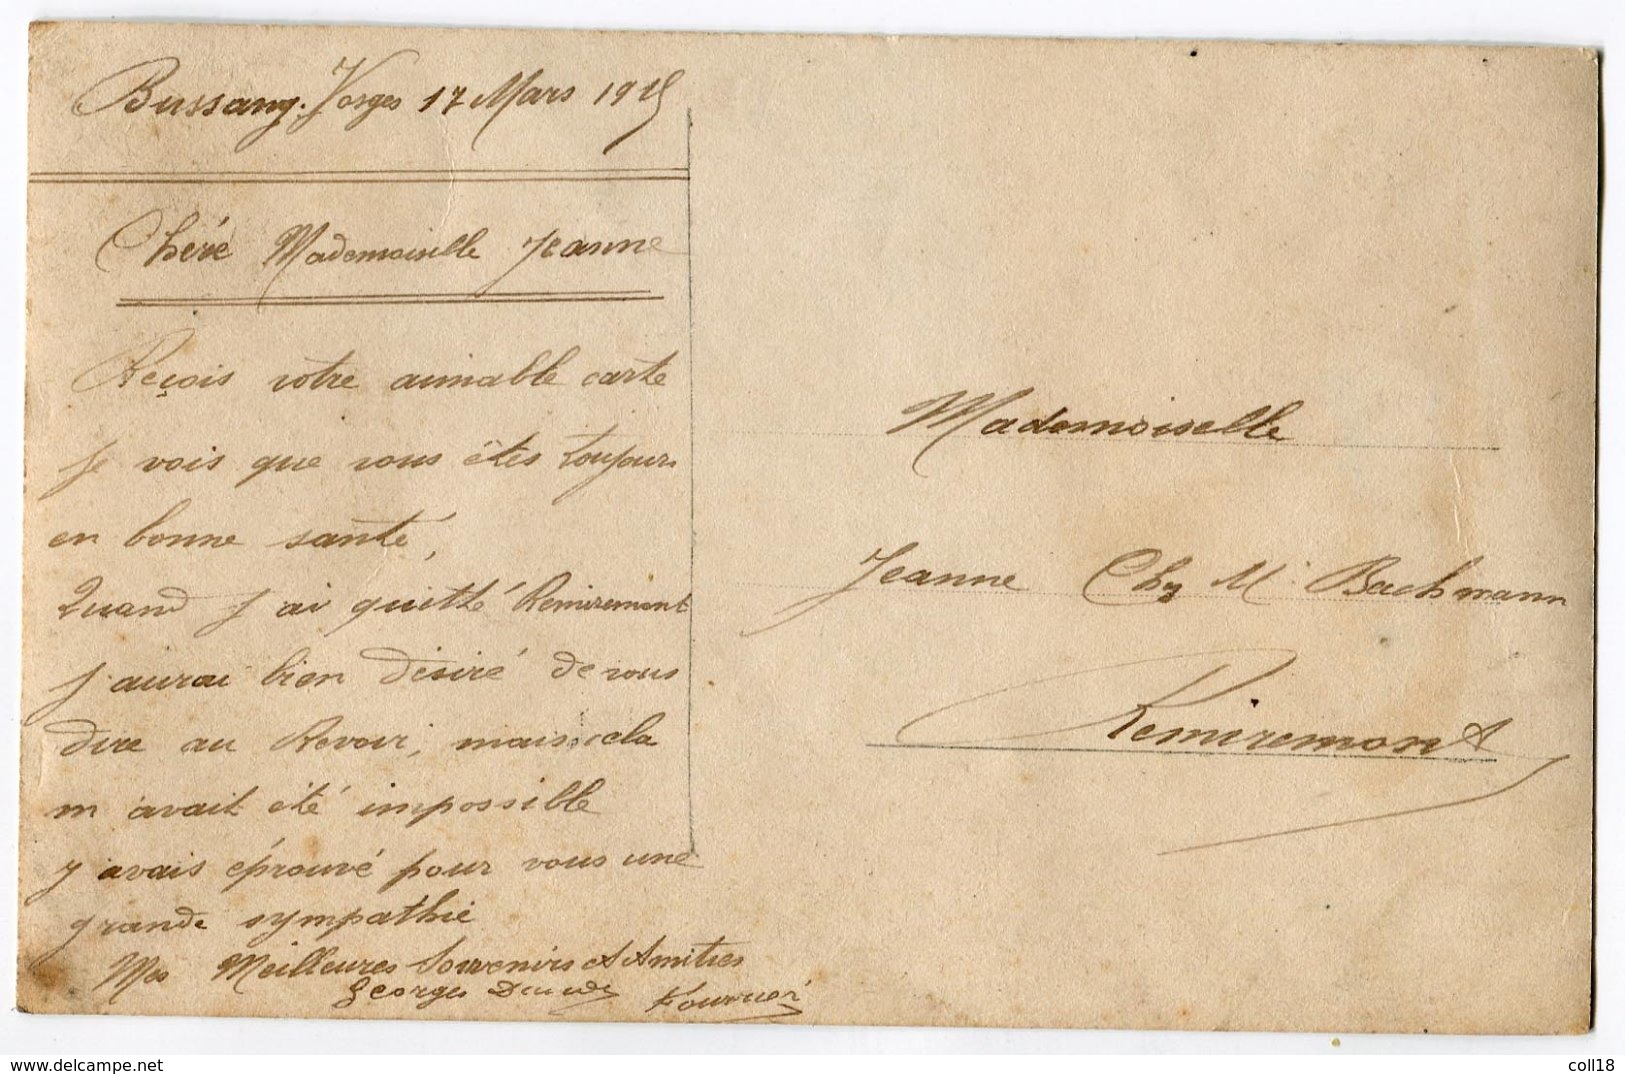 Bussang. Vosges 17 Mars 1915
Chére Mademoiselle Jeanne
Reçois votre aimable carte
Je vois que vous êtes toujours
en bonne santé,
Quand j'ai quitté Remiremont
j'aurai bien désiré de vous
dire au Revoir, mais cela
m'avait été impossible
j'avais éprouvé pour vous une
grande sympathie
Mes Meilleures Souvenirs et Amitres
Georges
Mademoiselle
Jeanne Chez M. Bachmann
Remiremont
delcampe.net
coll18